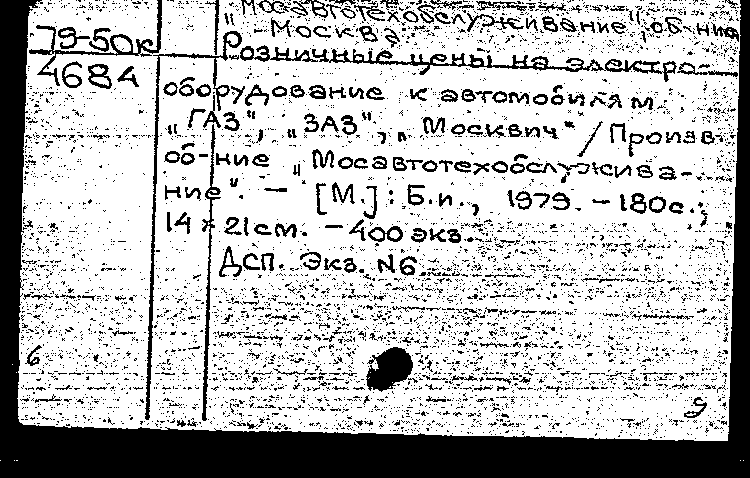 „Мосавтотехобслуживание", об-ние
79-50к
- Москва
Розничные цены на электро-
4684
оборудование к автомобилям
„ГАЗ", „ЗАЗ", „Москвич" / Произв.
об-ние „Мосавтотехобслужива-
ние". – [М.]: Б.и., 1979. – 180с.;
14 × 21см. – 400 экз.
ДСП. Экз. N6.
6
9